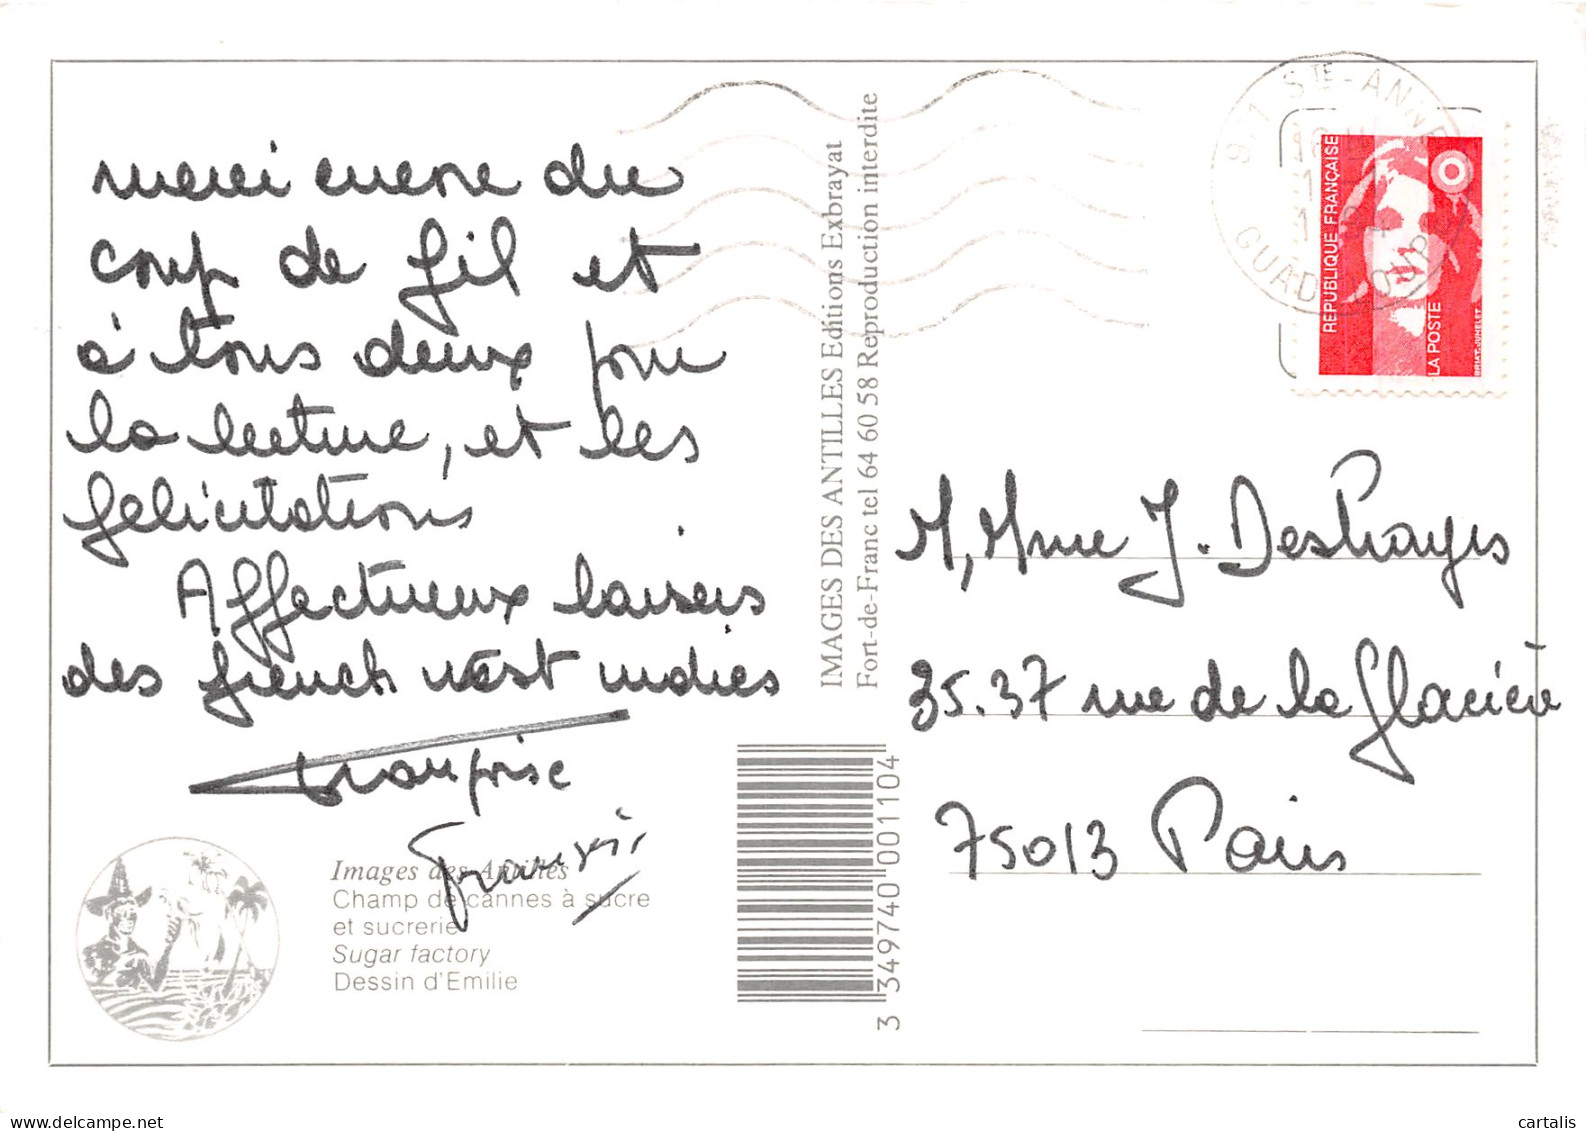 merci encore du
coup de fil et
à tous deux pour
la lecture, et les
félicitations
Affectueux baisers
des french west indies
Françoise
Images des Antilles
Champ de cannes à sucre
et sucrerie
Sugar factory
Dessin d'Emilie
IMAGES DES ANTILLES Editions Exbrayat
Fort-de-Franc tel 64 60 58 Reproduction interdite
3 349740 001104
971 STE-ANNE
GUADELOUPE
REPUBLIQUE FRANÇAISE
LA POSTE
BRIAT-JUMELET
M, Mme J. DesHayes
35.37 rue de la Glacière
75013 Paris
cartalis